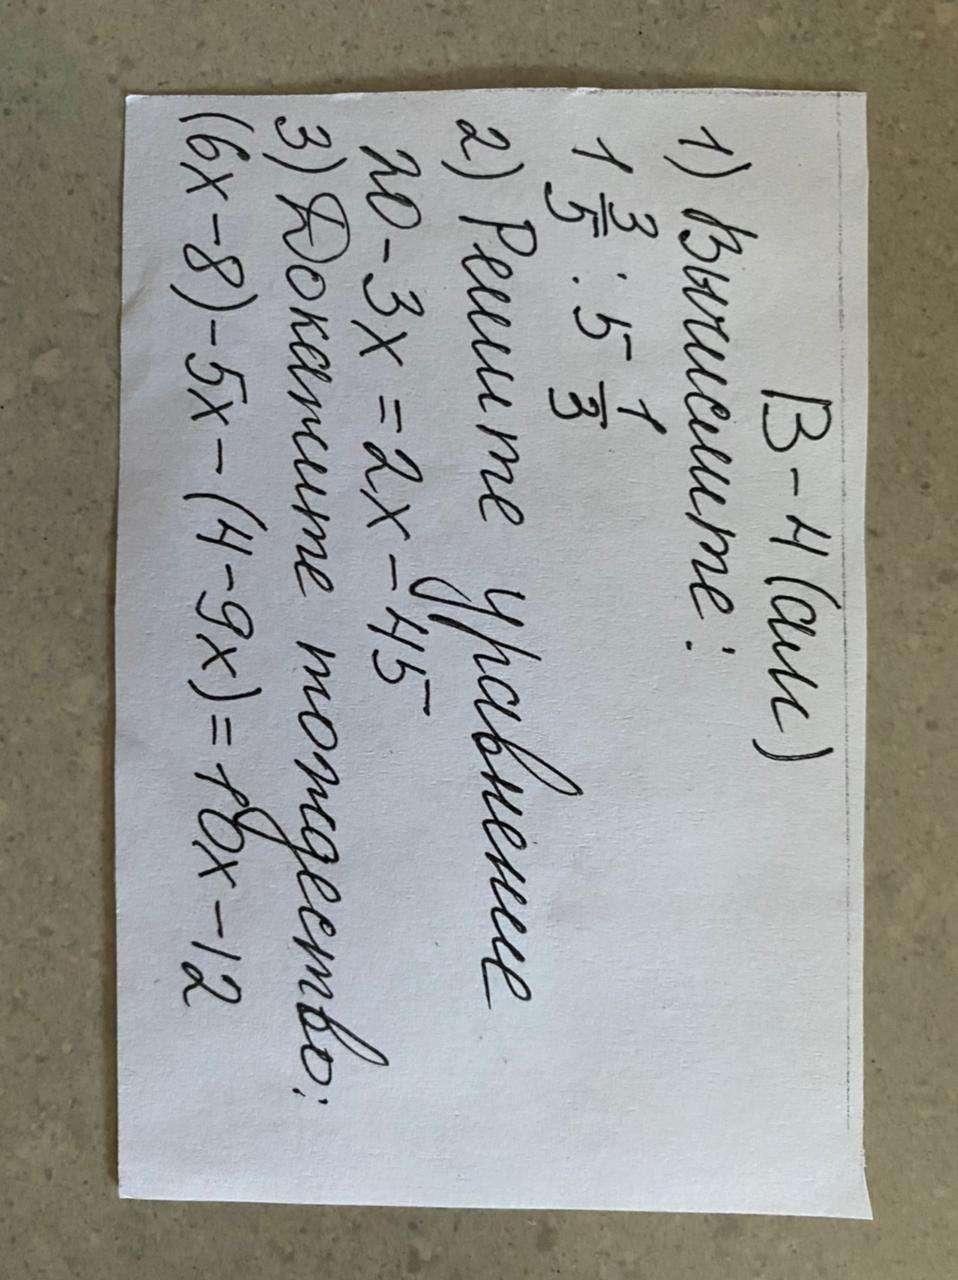 В-4 (алг)
1) Вычислите:
1 3/5 : 5 1/3
2) Решите уравнение
20-3x=2x-45
3) Докажите тождество:
(6x-8)-5x-(4-9x)=10x-12